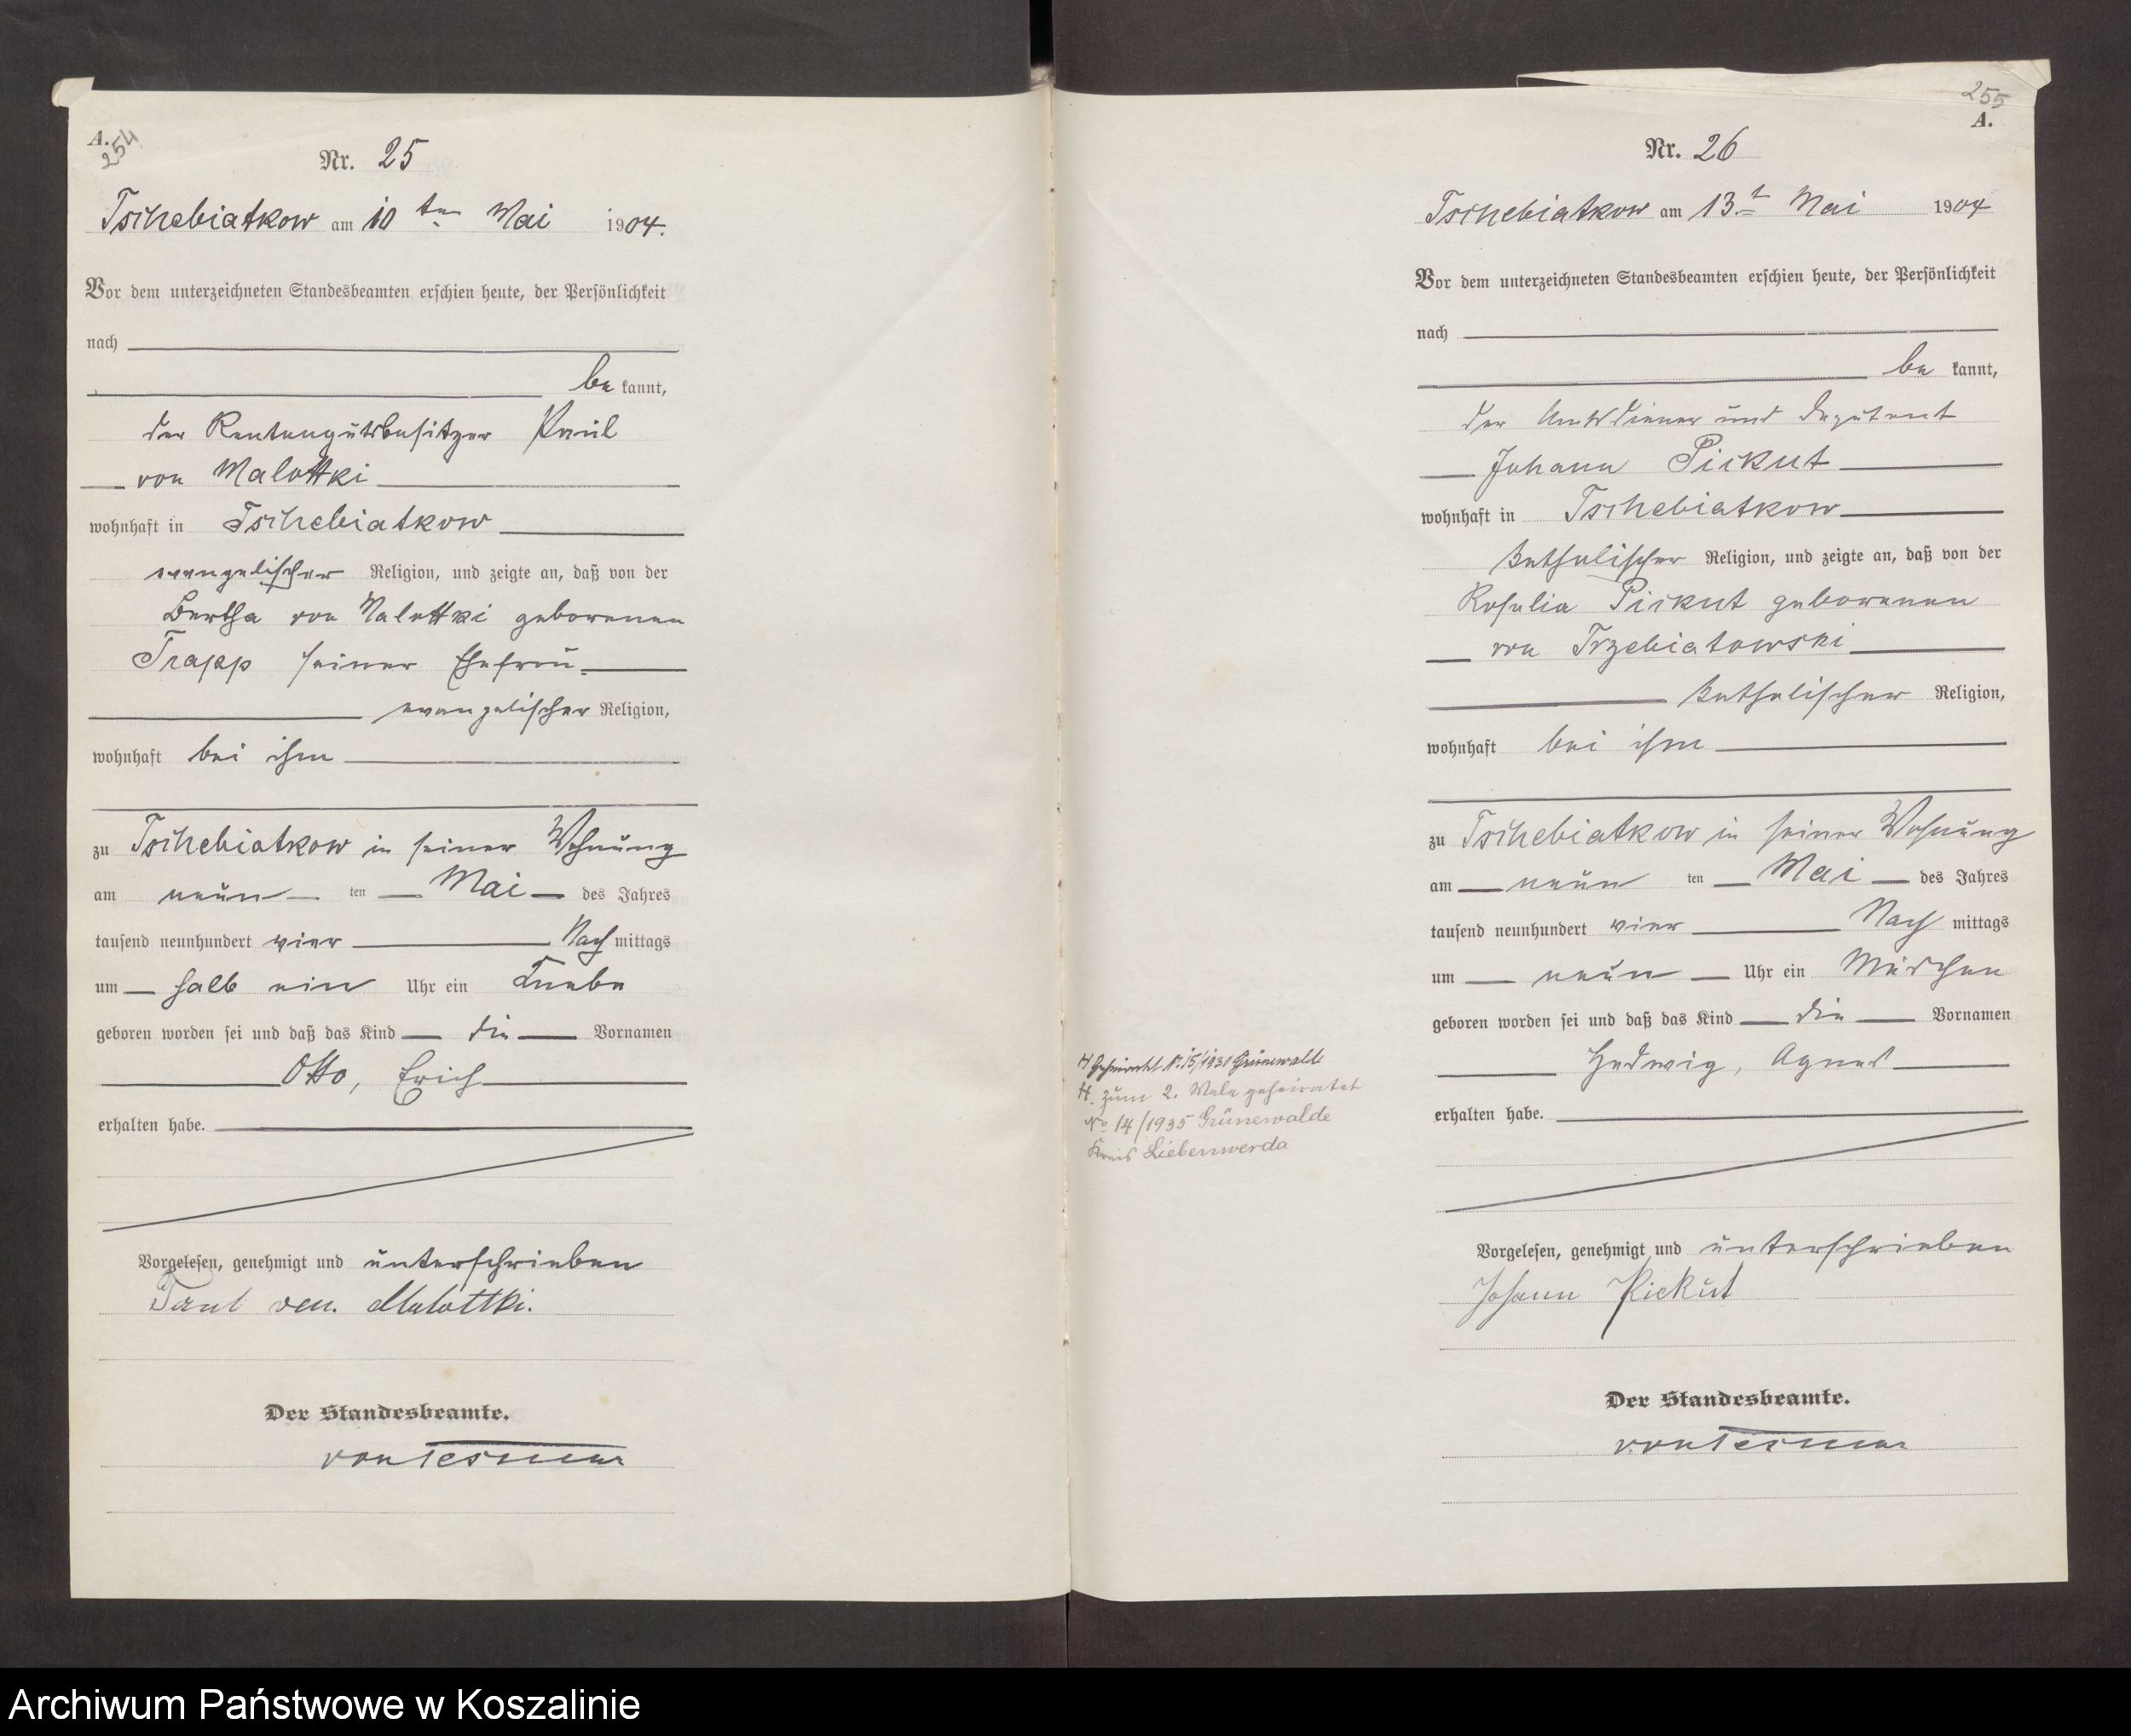 A.
254
Nr. 25
Tschebiatkow am 10ten Mai 1904.
Vor dem unterzeichneten Standesbeamten erschien heute, der Persönlichkeit
nach
be kannt,
der Rentengutsbesitzer Paul
von Malottki
wohnhaft in Tschebiatkow
evangelischer Religion, und zeigte an, daß von der
Bertha von Malottki geborenen
Trapp seiner Ehefrau
evangelischer Religion,
wohnhaft bei ihm
zu Tschebiatkow in seiner Wohnung
am neun ten Mai des Jahres
tausend neunhundert vier Nach mittags
um halb ein Uhr ein Knabe
geboren worden sei und daß das Kind die Vornamen
Otto, Erich
erhalten habe.
Vorgelesen, genehmigt und unterschrieben
Paul von Malottki.
Der Standesbeamte.
von Tesmar
255
A.
Nr. 26
Tschebiatkow am 13.t Mai 1904
Vor dem unterzeichneten Standesbeamten erschien heute, der Persönlichkeit
nach
be kannt,
der Amtsdiener und Deputant
Johann Pickut
wohnhaft in Tschebiatkow
Katholischer Religion, und zeigte an, daß von der
Rosalia Pickut geborenen
von Trzebiatowski
Katholischer Religion,
wohnhaft bei ihm
zu Tschebiatkow in seiner Wohnung
am neun ten Mai des Jahres
tausend neunhundert vier Nach mittags
um neun Uhr ein Mädchen
geboren worden sei und daß das Kind die Vornamen
Hedwig, Agnes
erhalten habe.
H Geheiratet Nr. 15/1931 Grünewalde
H. zum 2. Male geheiratet
No 14/1935 Grünewalde
Kreis Liebenwerda
Vorgelesen, genehmigt und unterschrieben
Johann Pickut
Der Standesbeamte.
von Tesmar
Archiwum Państwowe w Koszalinie